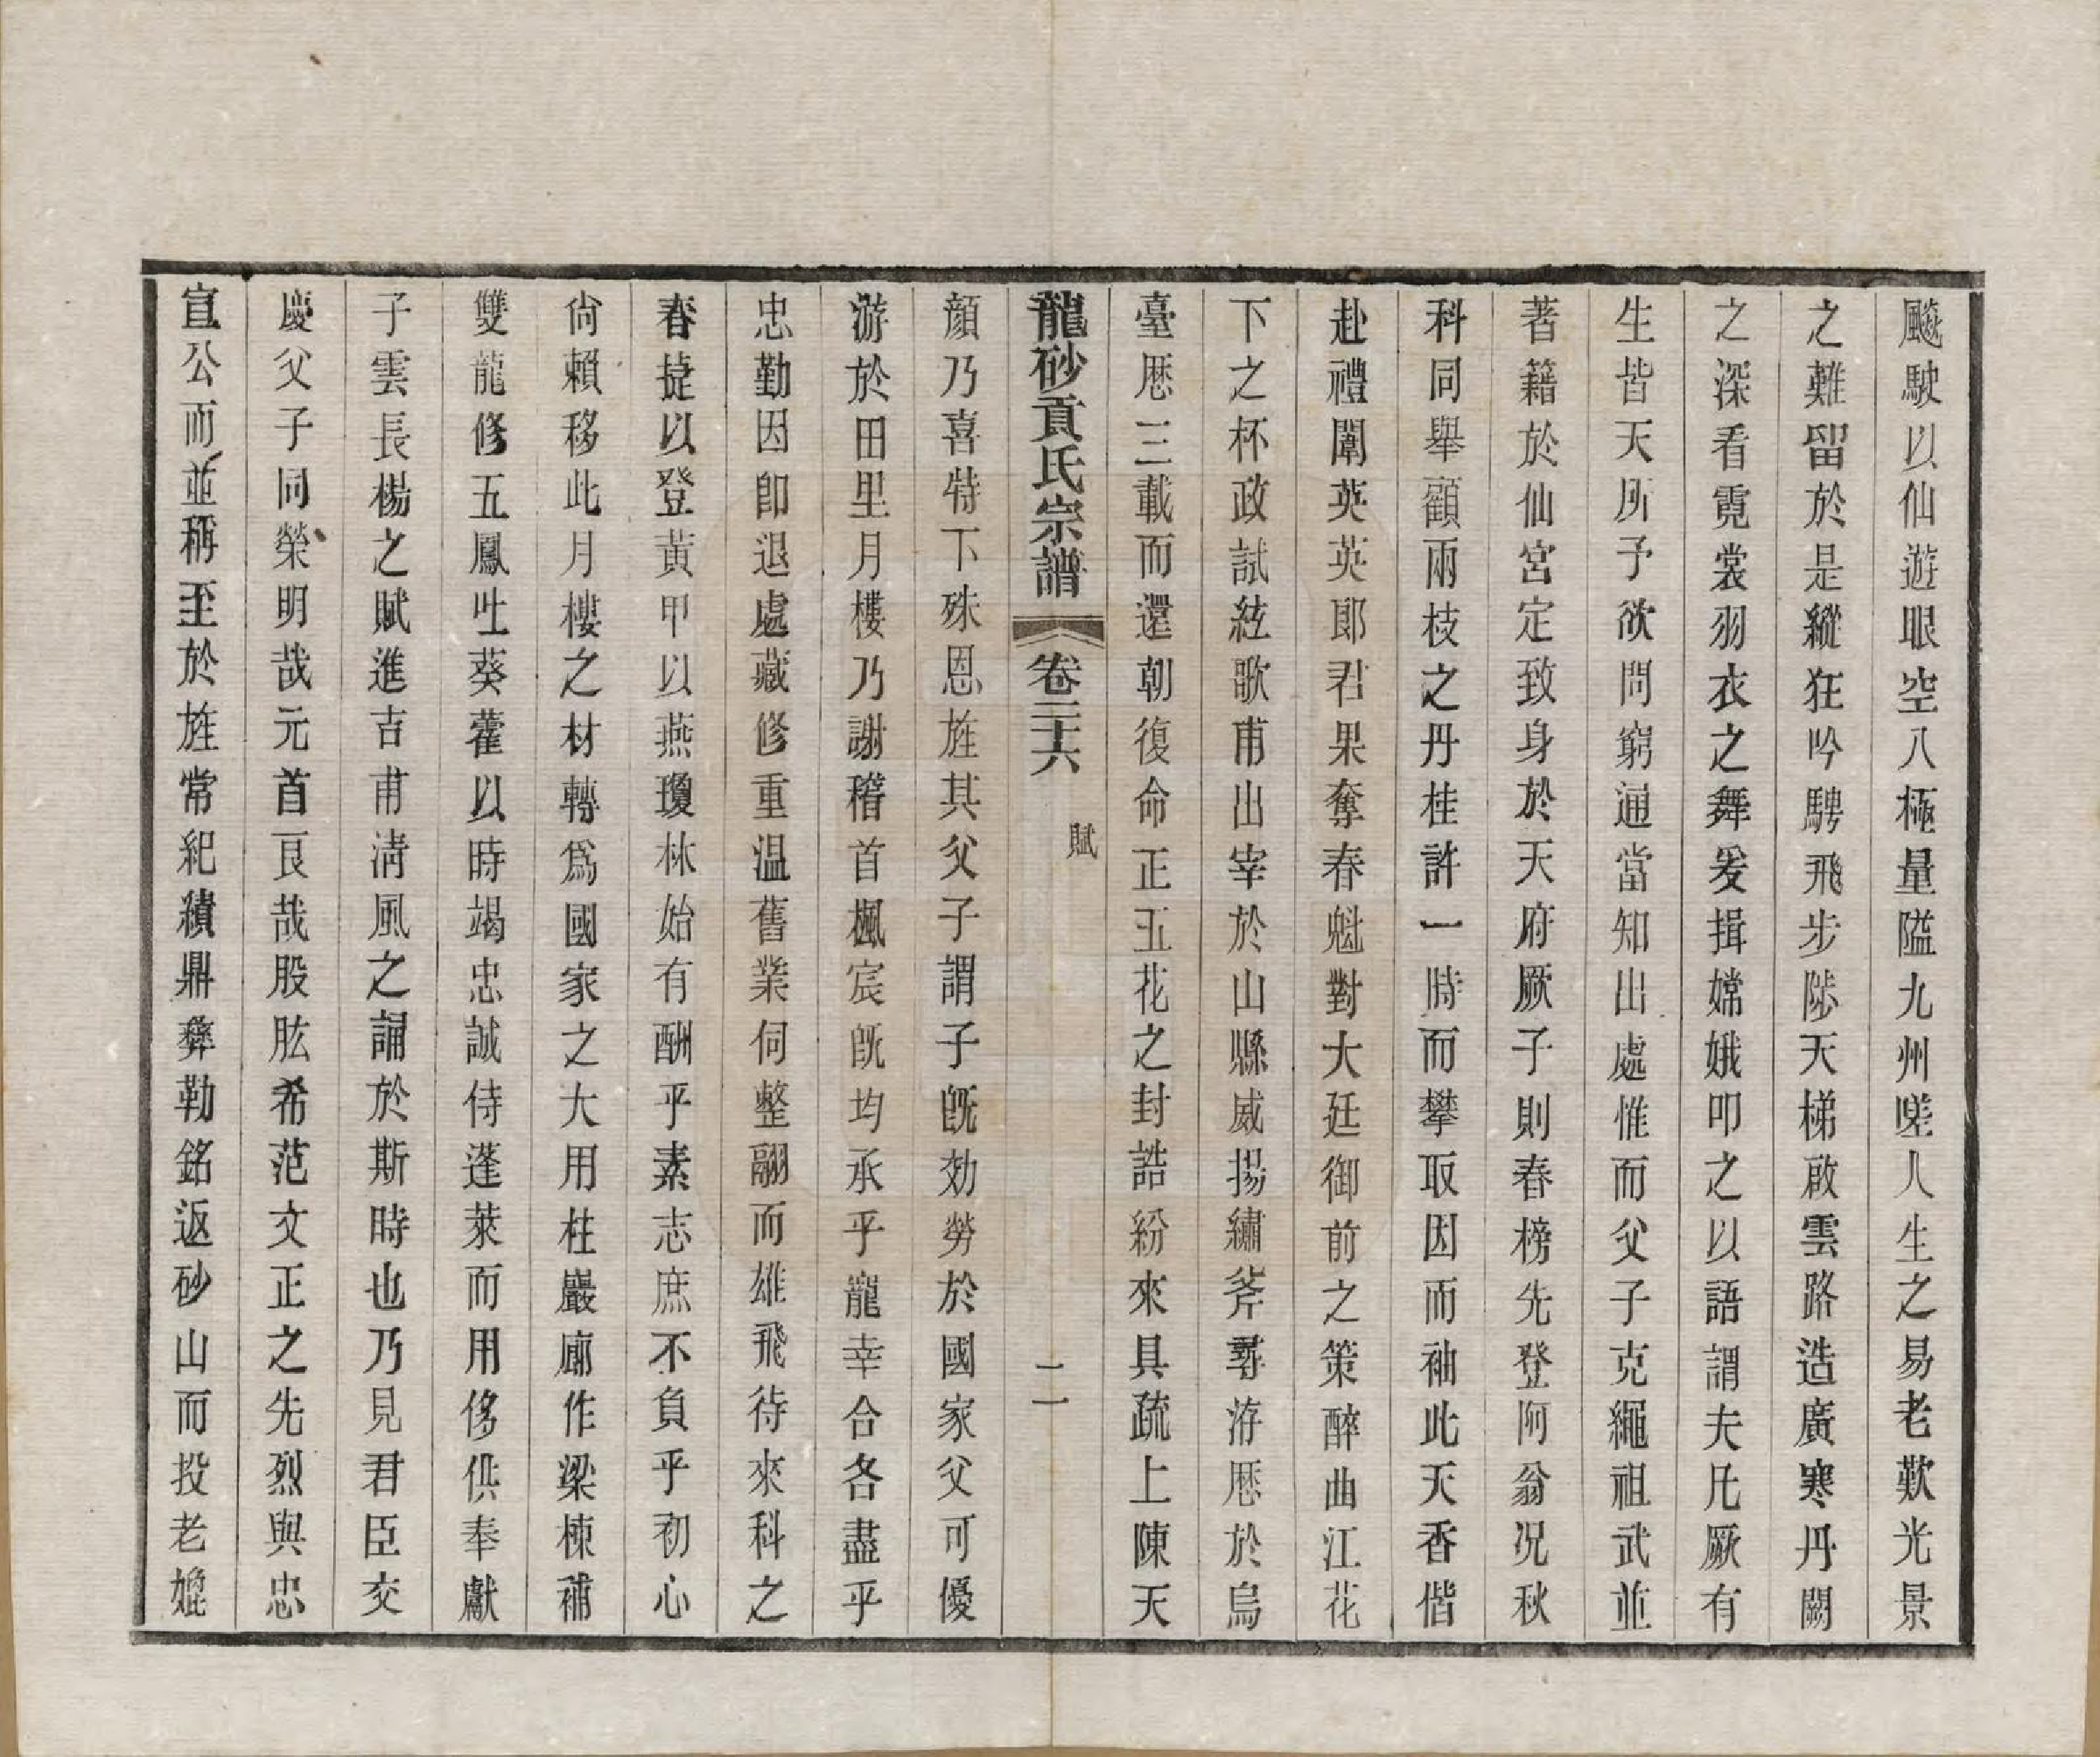 飈駛以仙遊眼空八極量隘九州嗟人生之易老歎光景
之難留於是縱狂吟騁飛步陟天梯啟雲路造廣寒丹闕
之深看霓裳羽衣之舞爰揖嫦娥叩之以語謂夫凡厥有
生皆天所予欲問窮通當知出處惟而父子克繩祖武並
著籍於仙宮定致身於天府厥子則春榜先登阿翁况秋
科同舉顧兩枝之丹桂許一時而攀取因而袖此天香偕
赴禮闈英英郞君果奪春魁對大廷御前之策醉曲江花
下之杯政試絃歌甫出宰於山縣威揚繡斧尋洊歷於烏
臺歷三載而還朝復命正五花之封誥紛來具疏上陳天
龍砂貢氏宗譜 卷二十六 賦 二
顏乃喜特下殊恩旌其父子謂子旣効勞於國家父可優
游於田里月樓乃謝稽首楓宸旣均承乎寵幸合各盡乎
忠勤因卽退處藏修重温舊業伺整翮而雄飛待來科之
春捷以登黃甲以燕瓊林始有酬乎素志庶不負乎初心
尙賴移此月樓之材轉爲國家之大用柱巖廊作梁棟補
雙龍修五鳳吐葵藿以時竭忠誠侍蓬萊而用侈供奉獻
子雲長楊之賦進吉甫淸風之誦於斯時也乃見君臣交
慶父子同榮明哉元首良哉股肱希范文正之先烈與忠
宣公而並稱至於旌常紀績鼎彝勒銘返砂山而投老媲